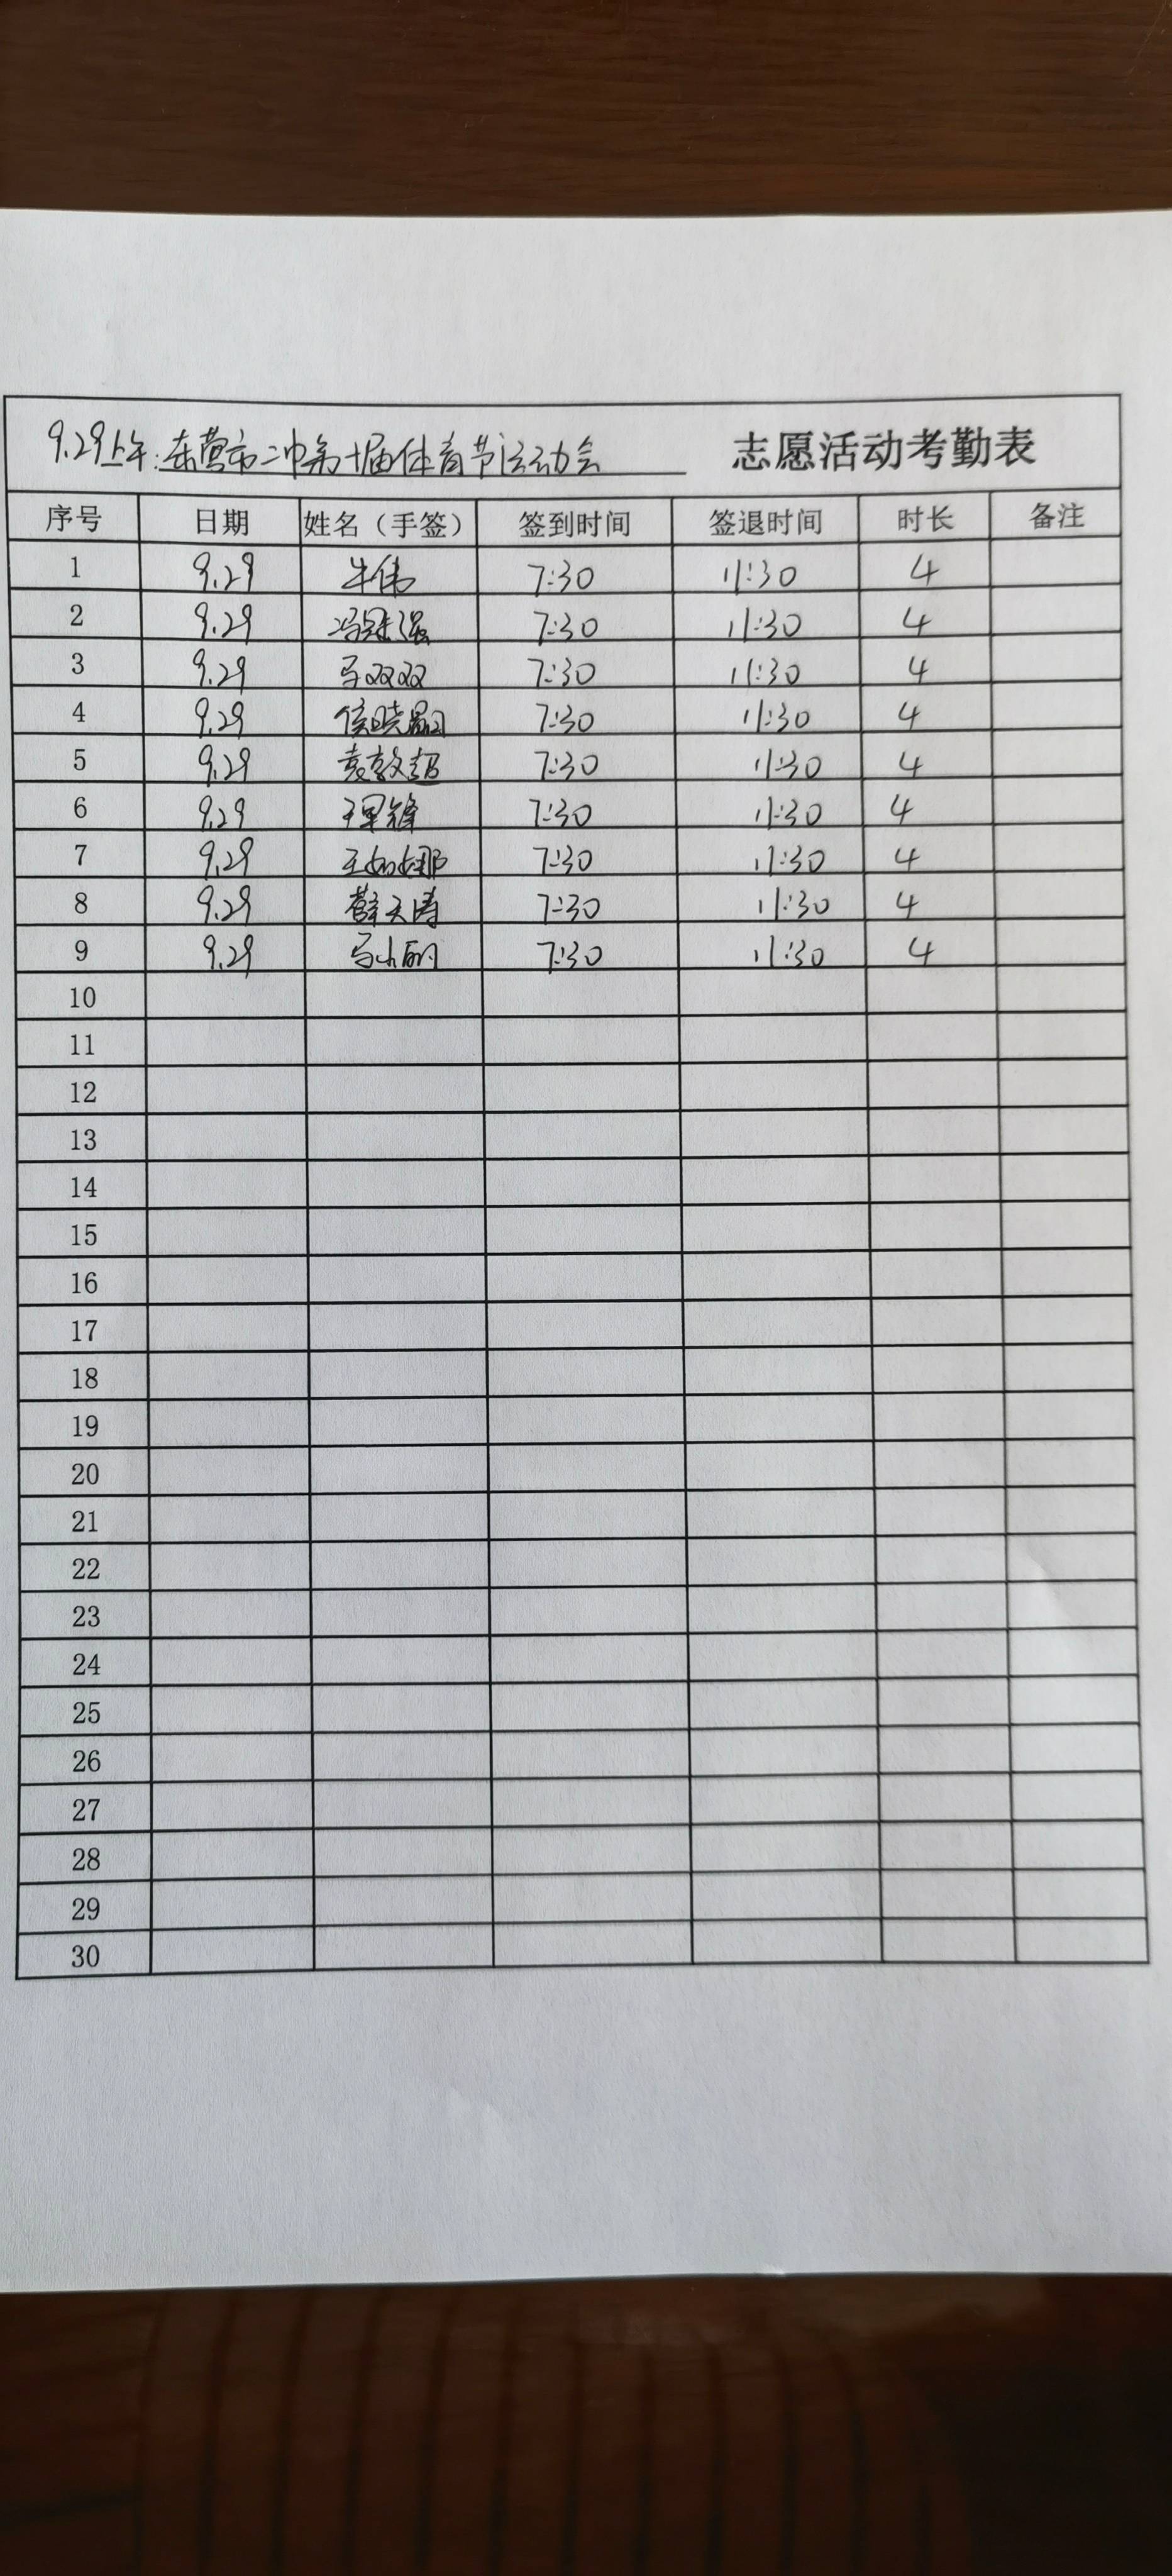 9.29上午:东营市二中第十届体育节运动会 志愿活动考勤表
序号 日期 姓名（手签） 签到时间 签退时间 时长 备注
1 9.29 牛伟 7:30 11:30 4
2 9.29 7:30 11:30 4
3 9.29 马双双 7:30 11:30 4
4 9.29 7:30 11:30 4
5 9.29 袁敦超 7:30 11:30 4
6 9.29 7:30 11:30 4
7 9.29 王如娜 7:30 11:30 4
8 9.29 薛天涛 7:30 11:30 4
9 9.29 马小丽 7:30 11:30 4
10
11
12
13
14
15
16
17
18
19
20
21
22
23
24
25
26
27
28
29
30